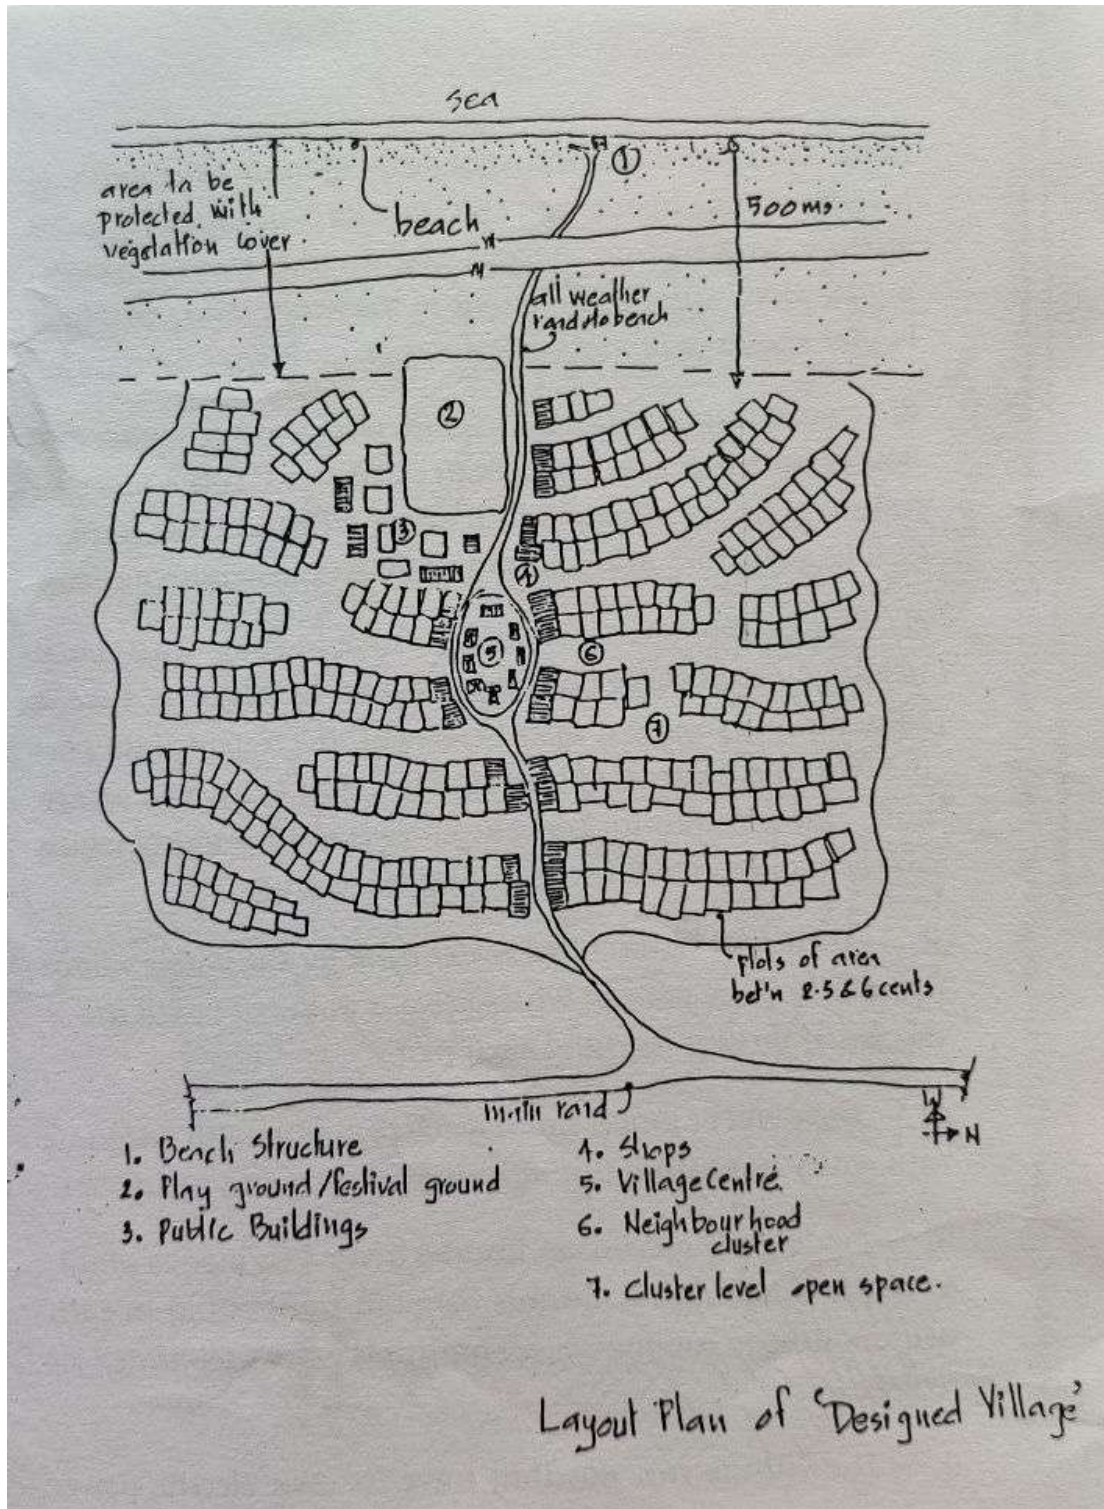 sea
①
area to be
protected with
vegetation cover.
beach
500ms.
all weather
road to beach
②
③
4
5
⑥
⑦
plots of area
bet'n 2.5 & 6 cents
main road
W
N
1. Beach Structure
2. Play ground/festival ground
3. Public Buildings
4. Shops
5. Village Centre.
6. Neighbourhood
cluster
7. Cluster level open space.
Layout Plan of 'Designed Village'